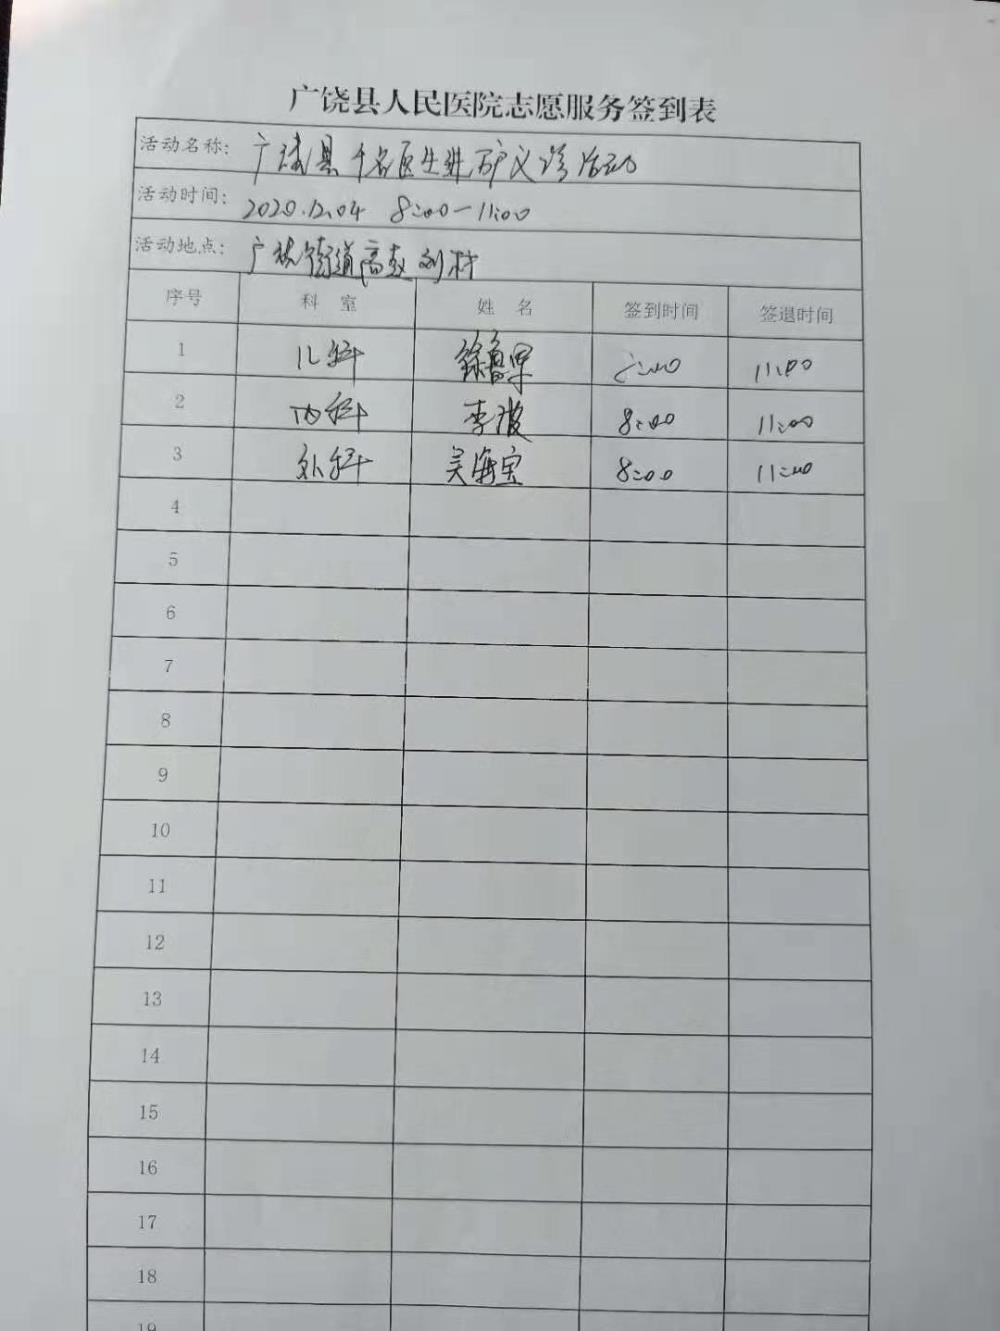 广饶县人民医院志愿服务签到表
活动名称: 广饶县千名医生进 义诊活动
活动时间: 2020.12.04 8:00-11:00
活动地点: 广饶街道高 刘村
序号 科室 姓名 签到时间 签退时间
1 儿科 徐鲁军 8:00 11:00
2 内科 李波 8:00 11:00
3 外科 吴海宝 8:00 11:00
4
5
6
7
8
9
10
11
12
13
14
15
16
17
18
19